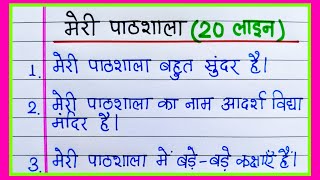 मेरी पाठशाला (20 लाइन)
1. मेरी पाठशाला बहुत सुंदर है।
2. मेरी पाठशाला का नाम आदर्श विद्या
मंदिर है।
3. मेरी पाठशाला में बड़े-बड़े कक्षाएँ हैं।